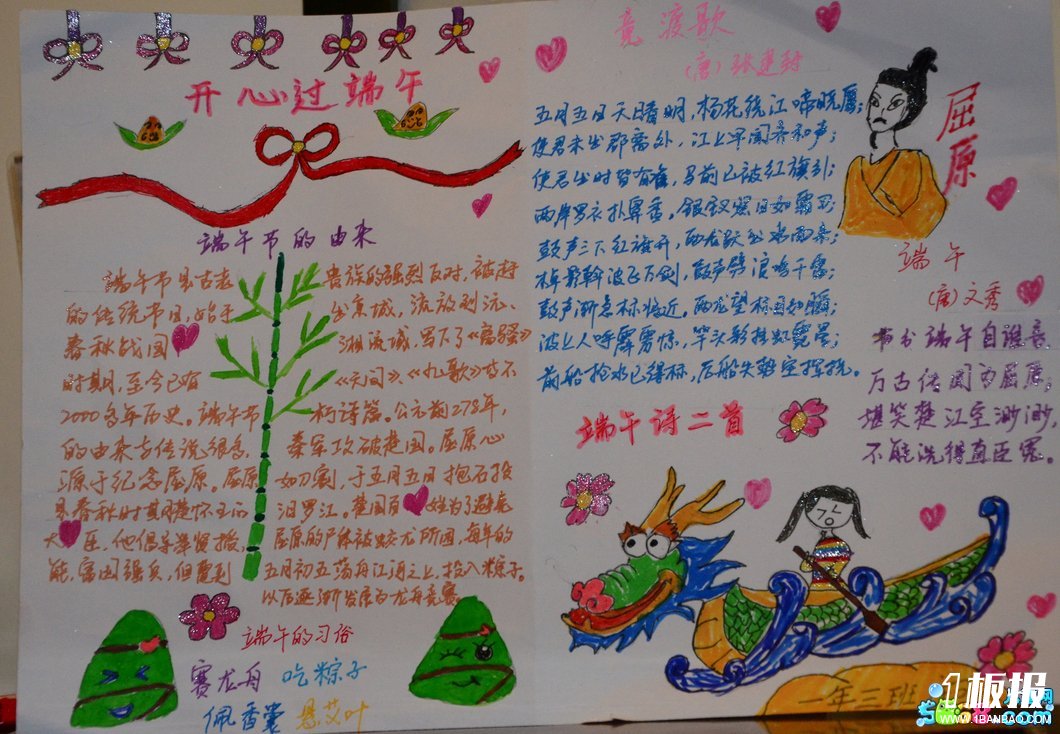 开心过端午
端午节的由来
端午节是古老
的传统节日,始于
春秋战国
时期,至今已有
2000多年历史。端午节
的由来与传说很多,
源于纪念屈原。屈原
是春秋时期楚怀王的
大臣,他倡导举贤授
能,富国强兵,但遭到
贵族的强烈反对,被赶
出京城,流放到沅、
湘流域,写下了《离骚》
《天问》、《九歌》等不
朽诗篇。公元前278年,
秦军攻破楚国。屈原心
如刀割,于五月五日抱石投
汨罗江。楚国百姓为了避免
屈原的尸体被蛟龙所困,每年的
五月初五荡舟江河之上,投入粽子。
以后逐渐发展为龙舟竞赛
端午的习俗
赛龙舟 吃粽子
佩香囊 悬艾叶
竞渡歌
(唐)张建封
五月五日天晴明,杨花绕江啼晓鹰;
使君未出郡斋外,江上早闻齐和声;
使君出时皆有准,马前已被红旗引;
两岸罗衣扑鼻香,银钗照日如霜刃;
鼓声三下红旗开,两龙跃出浮水来;
棹影斡波飞万剑,鼓声劈浪鸣千雷;
鼓声渐急标将近,两龙望标目如瞬;
波上人呼霹雳惊,竿头彩挂虹霓晕;
前船抢水已得标,后船失势空挥挠。
端午诗二首
屈原
端午
(唐)文秀
节分端午自谁言,
万古传闻为屈原;
堪笑楚江空渺渺,
不能洗得直臣冤。
一年三班
板报
WWW.1BANBAO.COM